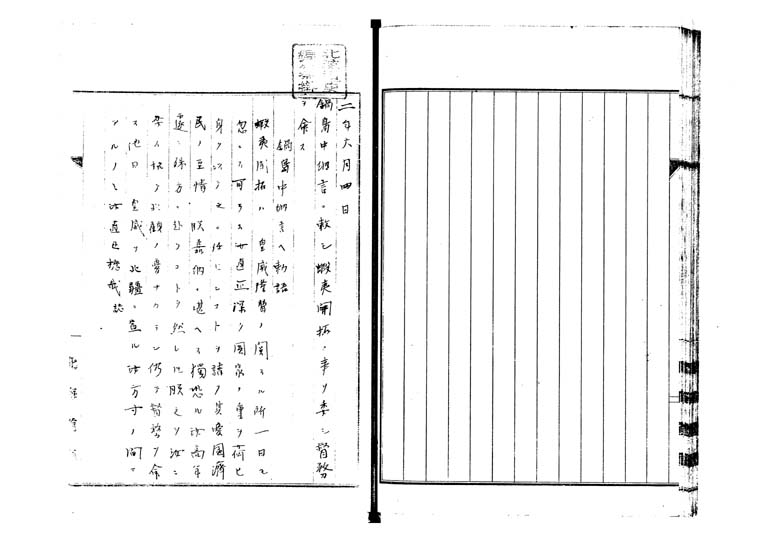 二年六月四日
鍋島中納言ニ勅シ蝦夷開拓ノ事ヲ委シ督務
ヲ命ス
鍋島中納言ヘ勅語
蝦夷開拓ハ皇威隆替ノ関スル所一日モ
忽ニス可ラス汝直正深ク国家ノ重ヲ荷ヒ
身ヲ以テ之ニ任センコトヲ請フ其憂国済
民ノ至情朕嘉納ニ堪ヘス独恐ル汝高年
遠ク殊方ニ赴クコトヲ然レトモ朕之ヲ汝ニ
委ス始テ北顧ノ憂ナクラン仍テ督務ヲ命
ス他日皇威ヲ北疆ニ宣ル汝方寸ノ間ニ
アルノミ汝直正懋哉